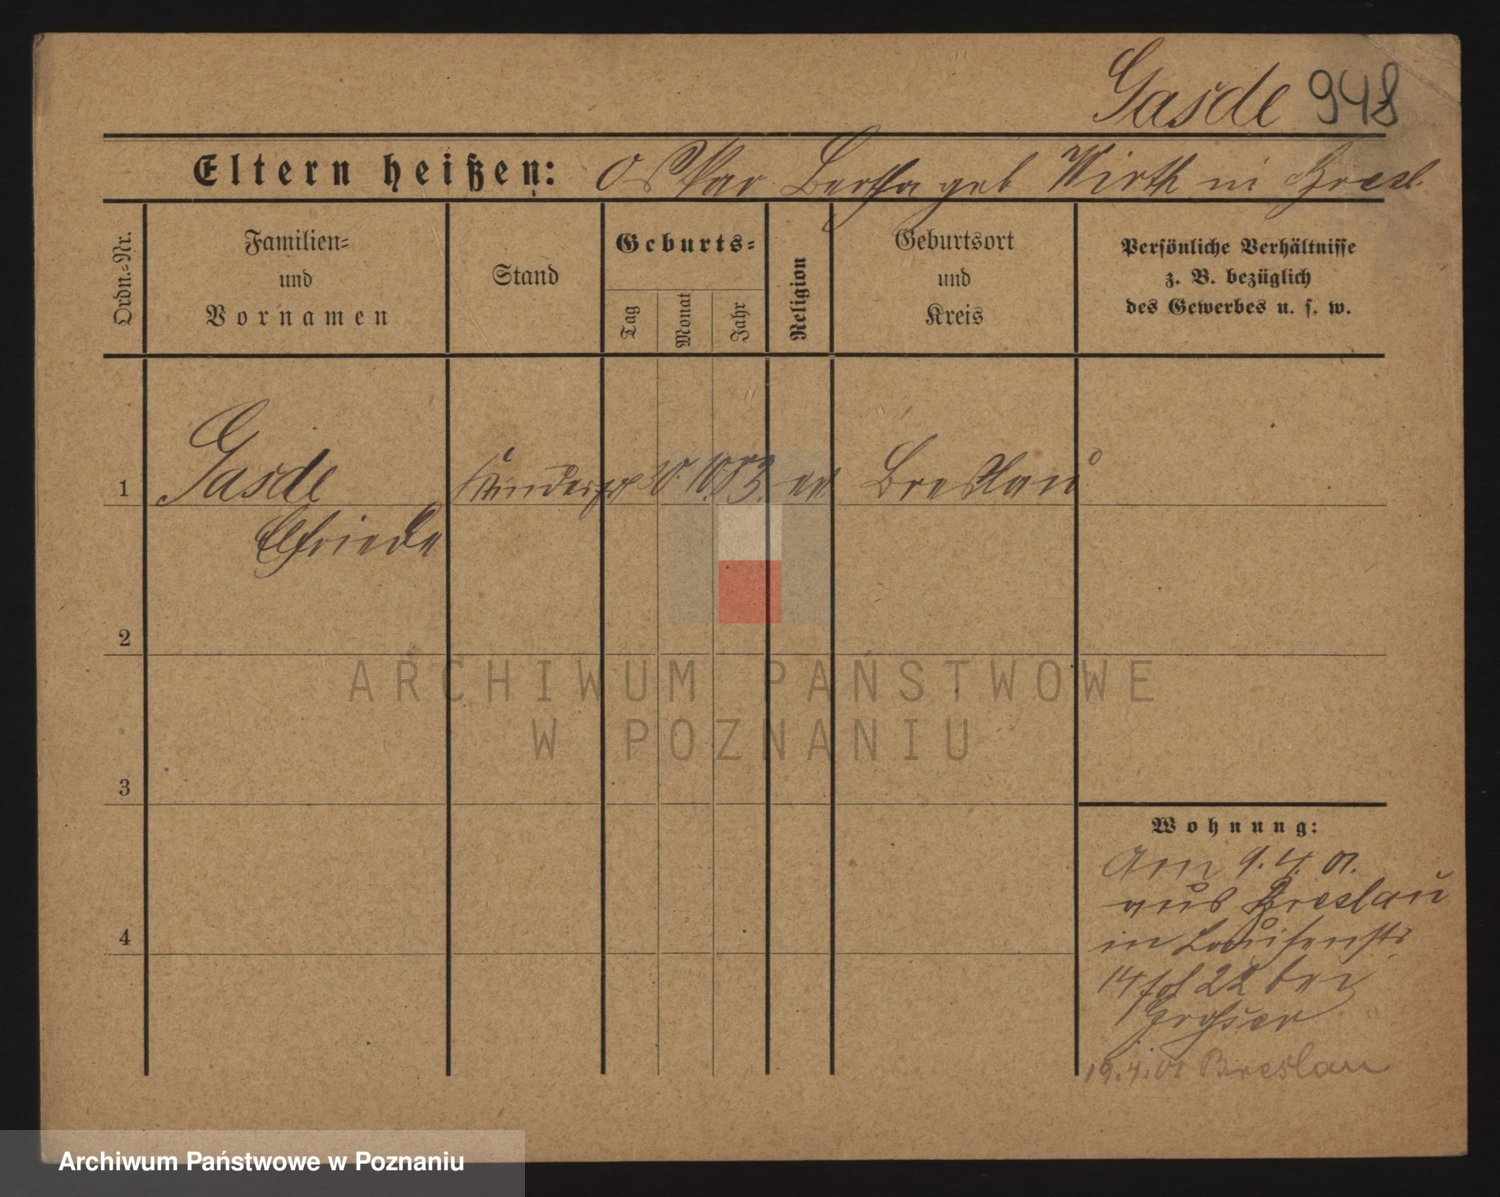 Gasde 948
Eltern heißen: Oskar Bertha geb Wirth in Bresl.
Ordn.=Nr.
Familien=
und
Vornamen
Stand
Geburts=
Tag
Monat
Jahr
Religion
Geburtsort
und
Kreis
Persönliche Verhältnisse
z. B. bezüglich
des Gewerbes u. s. w.
1 Gasde 10. 83. ev Breslau
Elfriede
2
3
4
Wohnung:
Am 9.4.01.
aus Breslau
in Louisenstr
14 22 bei
Grosser
19.4.01 Breslau
ARCHIWUM PAŃSTWOWE
W POZNANIU
Archiwum Państwowe w Poznaniu